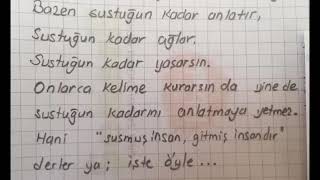 Bazen sustuğun kadar anlatır,
Sustuğun kadar ağlar.
Sustuğun kadar yaşarsın.
Onlarca kelime kurarsın da yine de
sustuğun kadarını anlatmaya yetmez.
Hani "susmuş insan, gitmiş insandır"
derler ya; işte öyle...